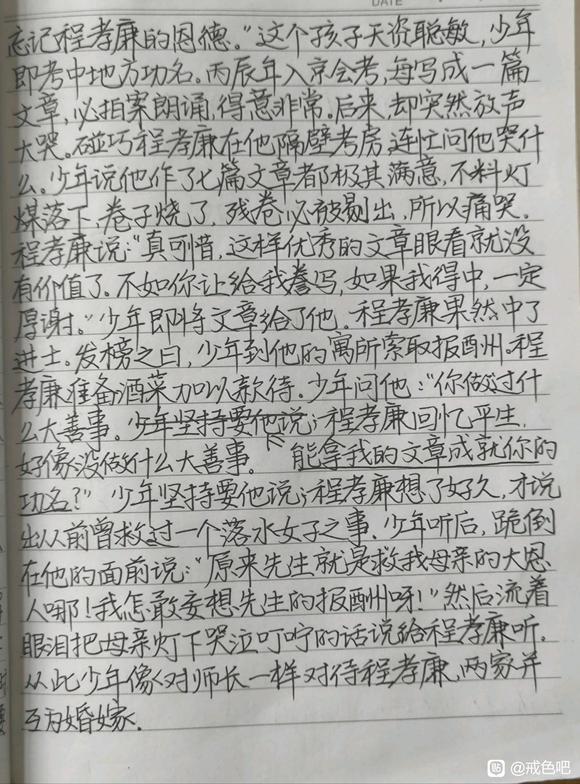 DATE
忘记程孝廉的恩德。"这个孩子天资聪敏，少年
即考中地方功名。丙辰年入京会考，每写成一篇
文章，必拍案朗诵，得意非常。后来，却突然放声
大哭。碰巧程孝廉在他隔壁考房，连忙问他哭什
么。少年说他作了七篇文章都极其满意，不料灯
煤落下，卷子烧了，残卷必被剔出，所以痛哭。
程孝廉说："真可惜，这样优秀的文章眼看就没
有价值了。不如你让给我誊写，如果我得中，一定
厚谢。"少年即将文章给了他。程孝廉果然中了
进士。发榜之日，少年到他的寓所索取报酬。程
孝廉准备酒菜加以款待。少年问他："你做过什
么大善事。少年坚持要他说；程孝廉回忆平生，
好像没做什么大善事。 能拿我的文章成就你的
功名？" 少年坚持要他说；程孝廉想了好久，才说
出从前曾救过一个落水女子之事。少年听后，跪倒
在他的面前说："原来先生就是救我母亲的大恩
人哪！我怎敢妄想先生的报酬呀！"然后流着
眼泪把母亲灯下哭泣叮咛的话说给程孝廉听。
从此少年像对师长一样对待程孝廉，两家并
互为婚嫁。
贴 @戒色吧